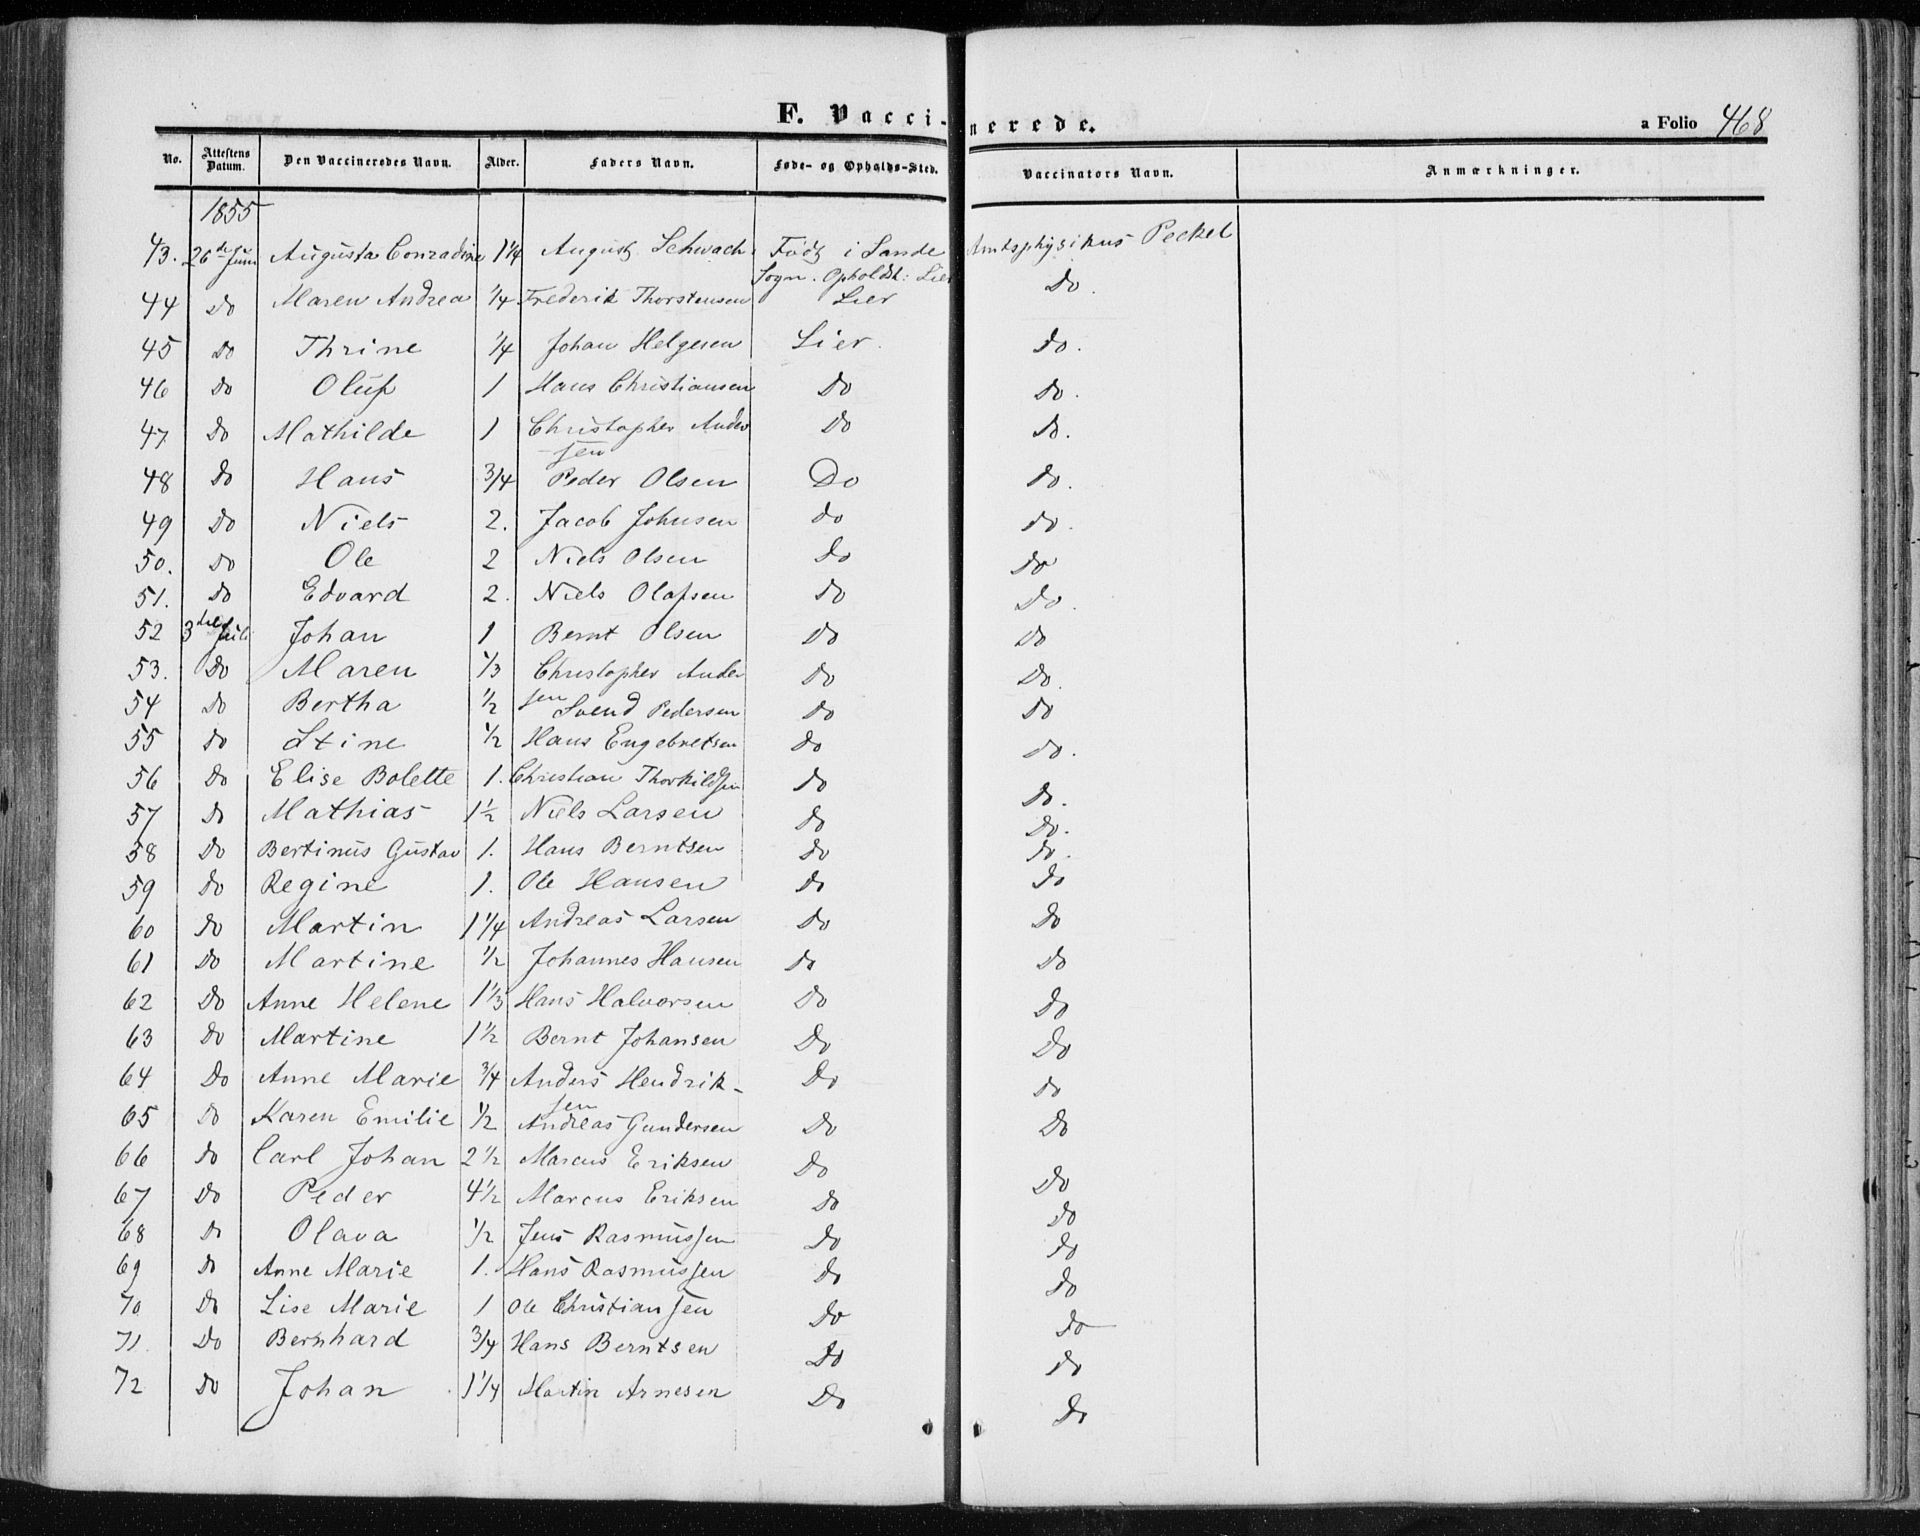 F. Vaccinerede.
a Folio 468
No. Attestens Datum. Den Vaccineredes Navn. Alder. Faders Navn. Føde- og Opholds-Sted. Vaccinators Navn. Anmærkninger.
1855
43. 26de Juni Augusta Conradine 1 1/4 August Schwach. Født i Sande Amtsphysikus Peckel
Sogn. Opholdst: Lier
44 Do Maren Andrea 1/4 Frederik Thorstensen Lier Do.
45 Do Thrine 1/4 Johan Helgesen Lier. Do.
46 Do Oluf 1 Hans Christiansen Do Do.
47 Do Mathilde 1 Christopher Ander Do Do.
-sen
48 Do Hans 3/4 Peder Olsen Do Do.
49 Do Niels 2. Jacob Johnsen do do.
50. Do Ole 2 Niels Olsen Do Do
51. Do Edvard 2. Niels Olafsen Do Do.
52 3die Juli Johan 1 Bernt Olsen Do Do
53. Do Maren 1/3 Christopher Ander Do Do.
sen
54 Do Bertha 1/2 Svend Pedersen Do Do
55 Do Stine 1/2 Hans Engebretsen Do Do.
56 Do Elise Bolette 1. Christian Thorkildsen Do Do.
57 Do Mathias 1 1/2 Niels Larsen Do Do.
58 Do Bertinus Gustav 1. Hans Berntsen Do Do.
59 Do Regine 1. Ole Hansen Do Do
60 Do Martin 1 1/4 Andreas Larsen Do Do
61 Do Martine 1/2 Johannes Hansen Do Do
62 Do Anne Helene 1 1/3 Hans Halvorsen Do Do
63 Do Martine 1 1/2 Bernt Johansen Do Do
64 Do Anne Marie 3/4 Anders Hendrik- Do Do
sen
65 Do Karen Emilie 1/2 Andreas Gundersen Do Do
66 Do Carl Johan 2 1/2 Marcus Eriksen Do Do
67 Do Peder 4 1/2 Marcus Eriksen Do Do
68 Do Olava 1/2 Jens Rasmussen Do Do
69 Do Anne Marie 1. Hans Rasmussen Do Do
70 Do Lise Marie 1 Ole Christiansen Do Do
71. Do Bernhard 3/4 Hans Berntsen Do Do
72 Do Johan 1 1/4 Martin Arnesen Do Do